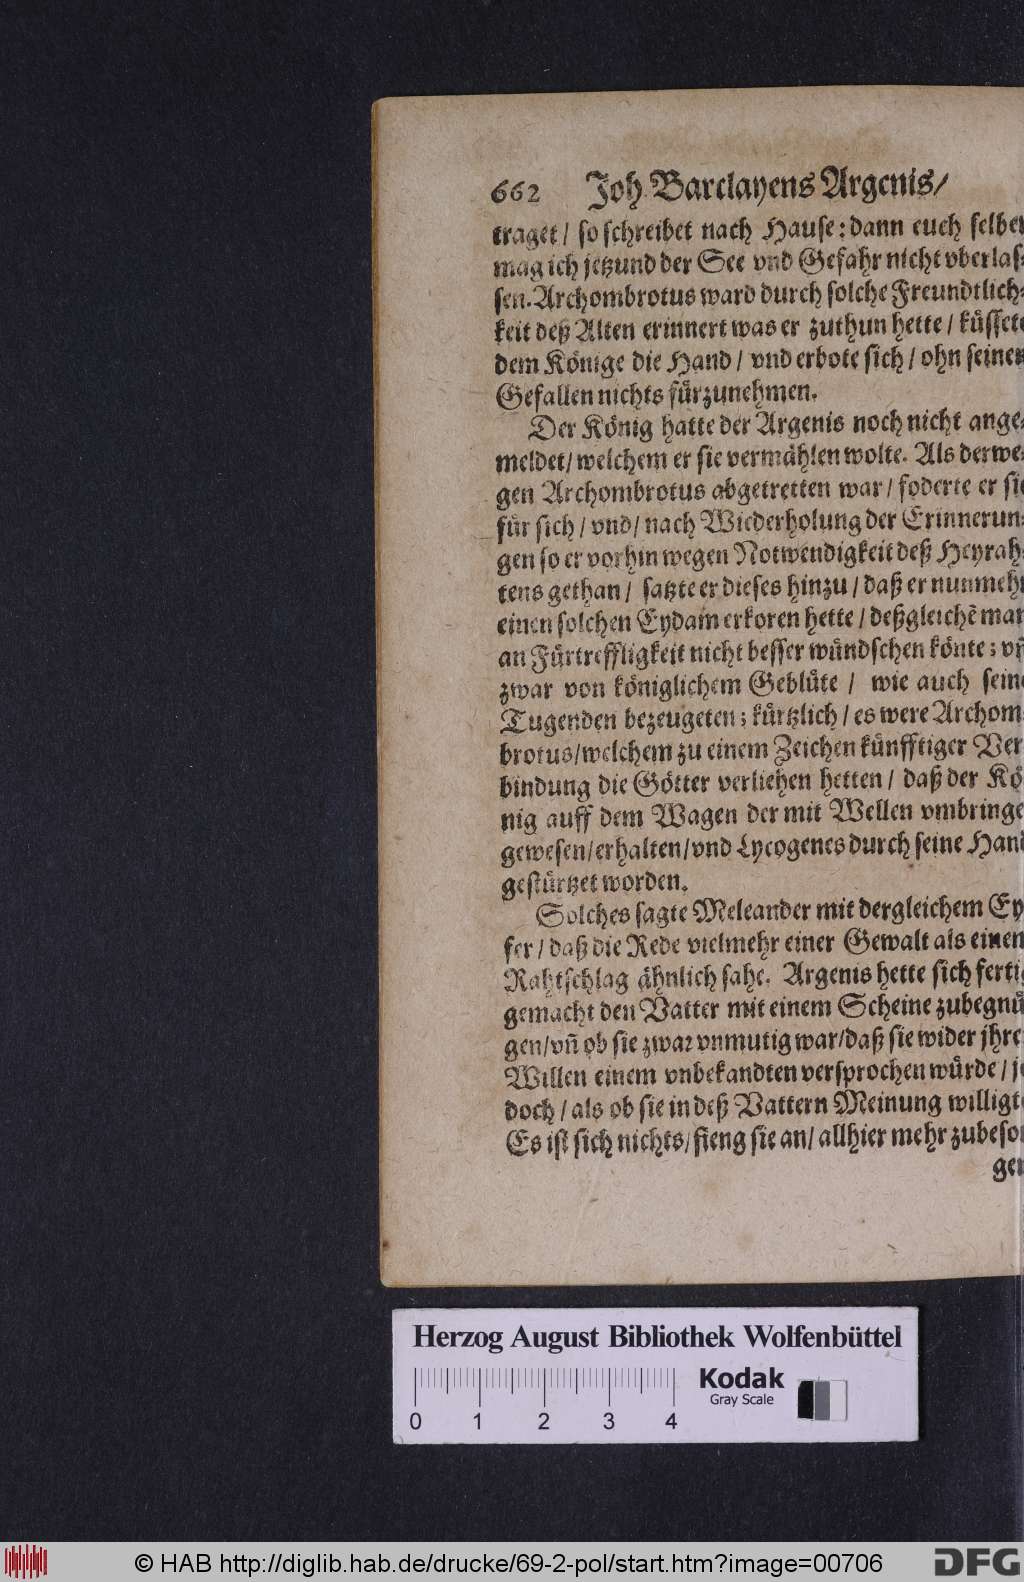 662 Joh. Barclayens Argenis/
traget/ so schreibet nach Hause: dann euch selber
mag ich jetzund der See vnd Gefahr nicht vberlas-
sen. Archombrotus ward durch solche Freundtlich-
keit deß Alten erinnert was er zuthun hette/ küssete
dem Könige die Hand/ vnd erbote sich/ ohn seinen
Gefallen nichts fürzunehmen.
Der König hatte der Argenis noch nicht ange-
meldet/ welchem er sie vermählen wolte. Als derwe-
gen Archombrotus abgetretten war/ foderte er sie
für sich/ vnd/ nach Wiederholung der Erinnerun-
gen so er vorhin wegen Notwendigkeit deß Heyrah-
tens gethan/ satzte er dieses hinzu/ daß er nunmehr
einen solchen Eydam erkoren hette/ deßgleichẽ man
an Fürtreffligkeit nicht besser wündschen könte; vñ
zwar von königlichem Geblüte/ wie auch seine
Tugenden bezeugeten; kürtzlich/ es were Archom-
brotus/ welchem zu einem Zeichen künfftiger Ver-
bindung die Götter verliehen hetten/ daß der Kö-
nig auff dem Wagen der mit Wellen vmbringe
gewesen/ erhalten/ vnd Lycogenes durch seine Hand
gestürtzet worden.
Solches sagte Meleander mit dergleichem Ey-
fer/ daß die Rede vielmehr einer Gewalt als einem
Rahtschlag ähnlich sahe. Argenis hette sich fertig
gemacht den Vatter mit einem Scheine zubegnü-
gen/ vñ ob sie zwar vnmutig war/ daß sie wider jhren
Willen einem vnbekandten versprochen würde/ je-
doch/ als ob sie in deß Vattern Meinung willigte
Es ist sich nichts/ fieng sie an/ allhier mehr zubesor-
gen
Herzog August Bibliothek Wolfenbüttel
Kodak
Gray Scale
0 1 2 3 4
© HAB http://diglib.hab.de/drucke/69-2-pol/start.htm?image=00706
DFG